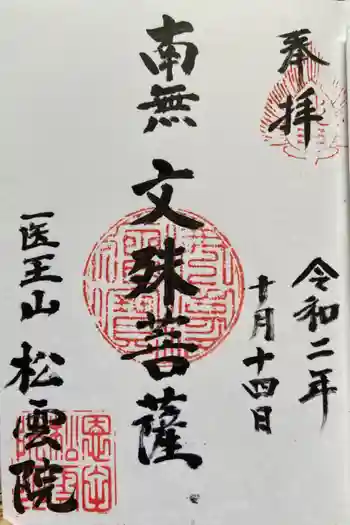 奉拝
令和二年
十月十四日
南無文殊菩薩
医王山
松雲院